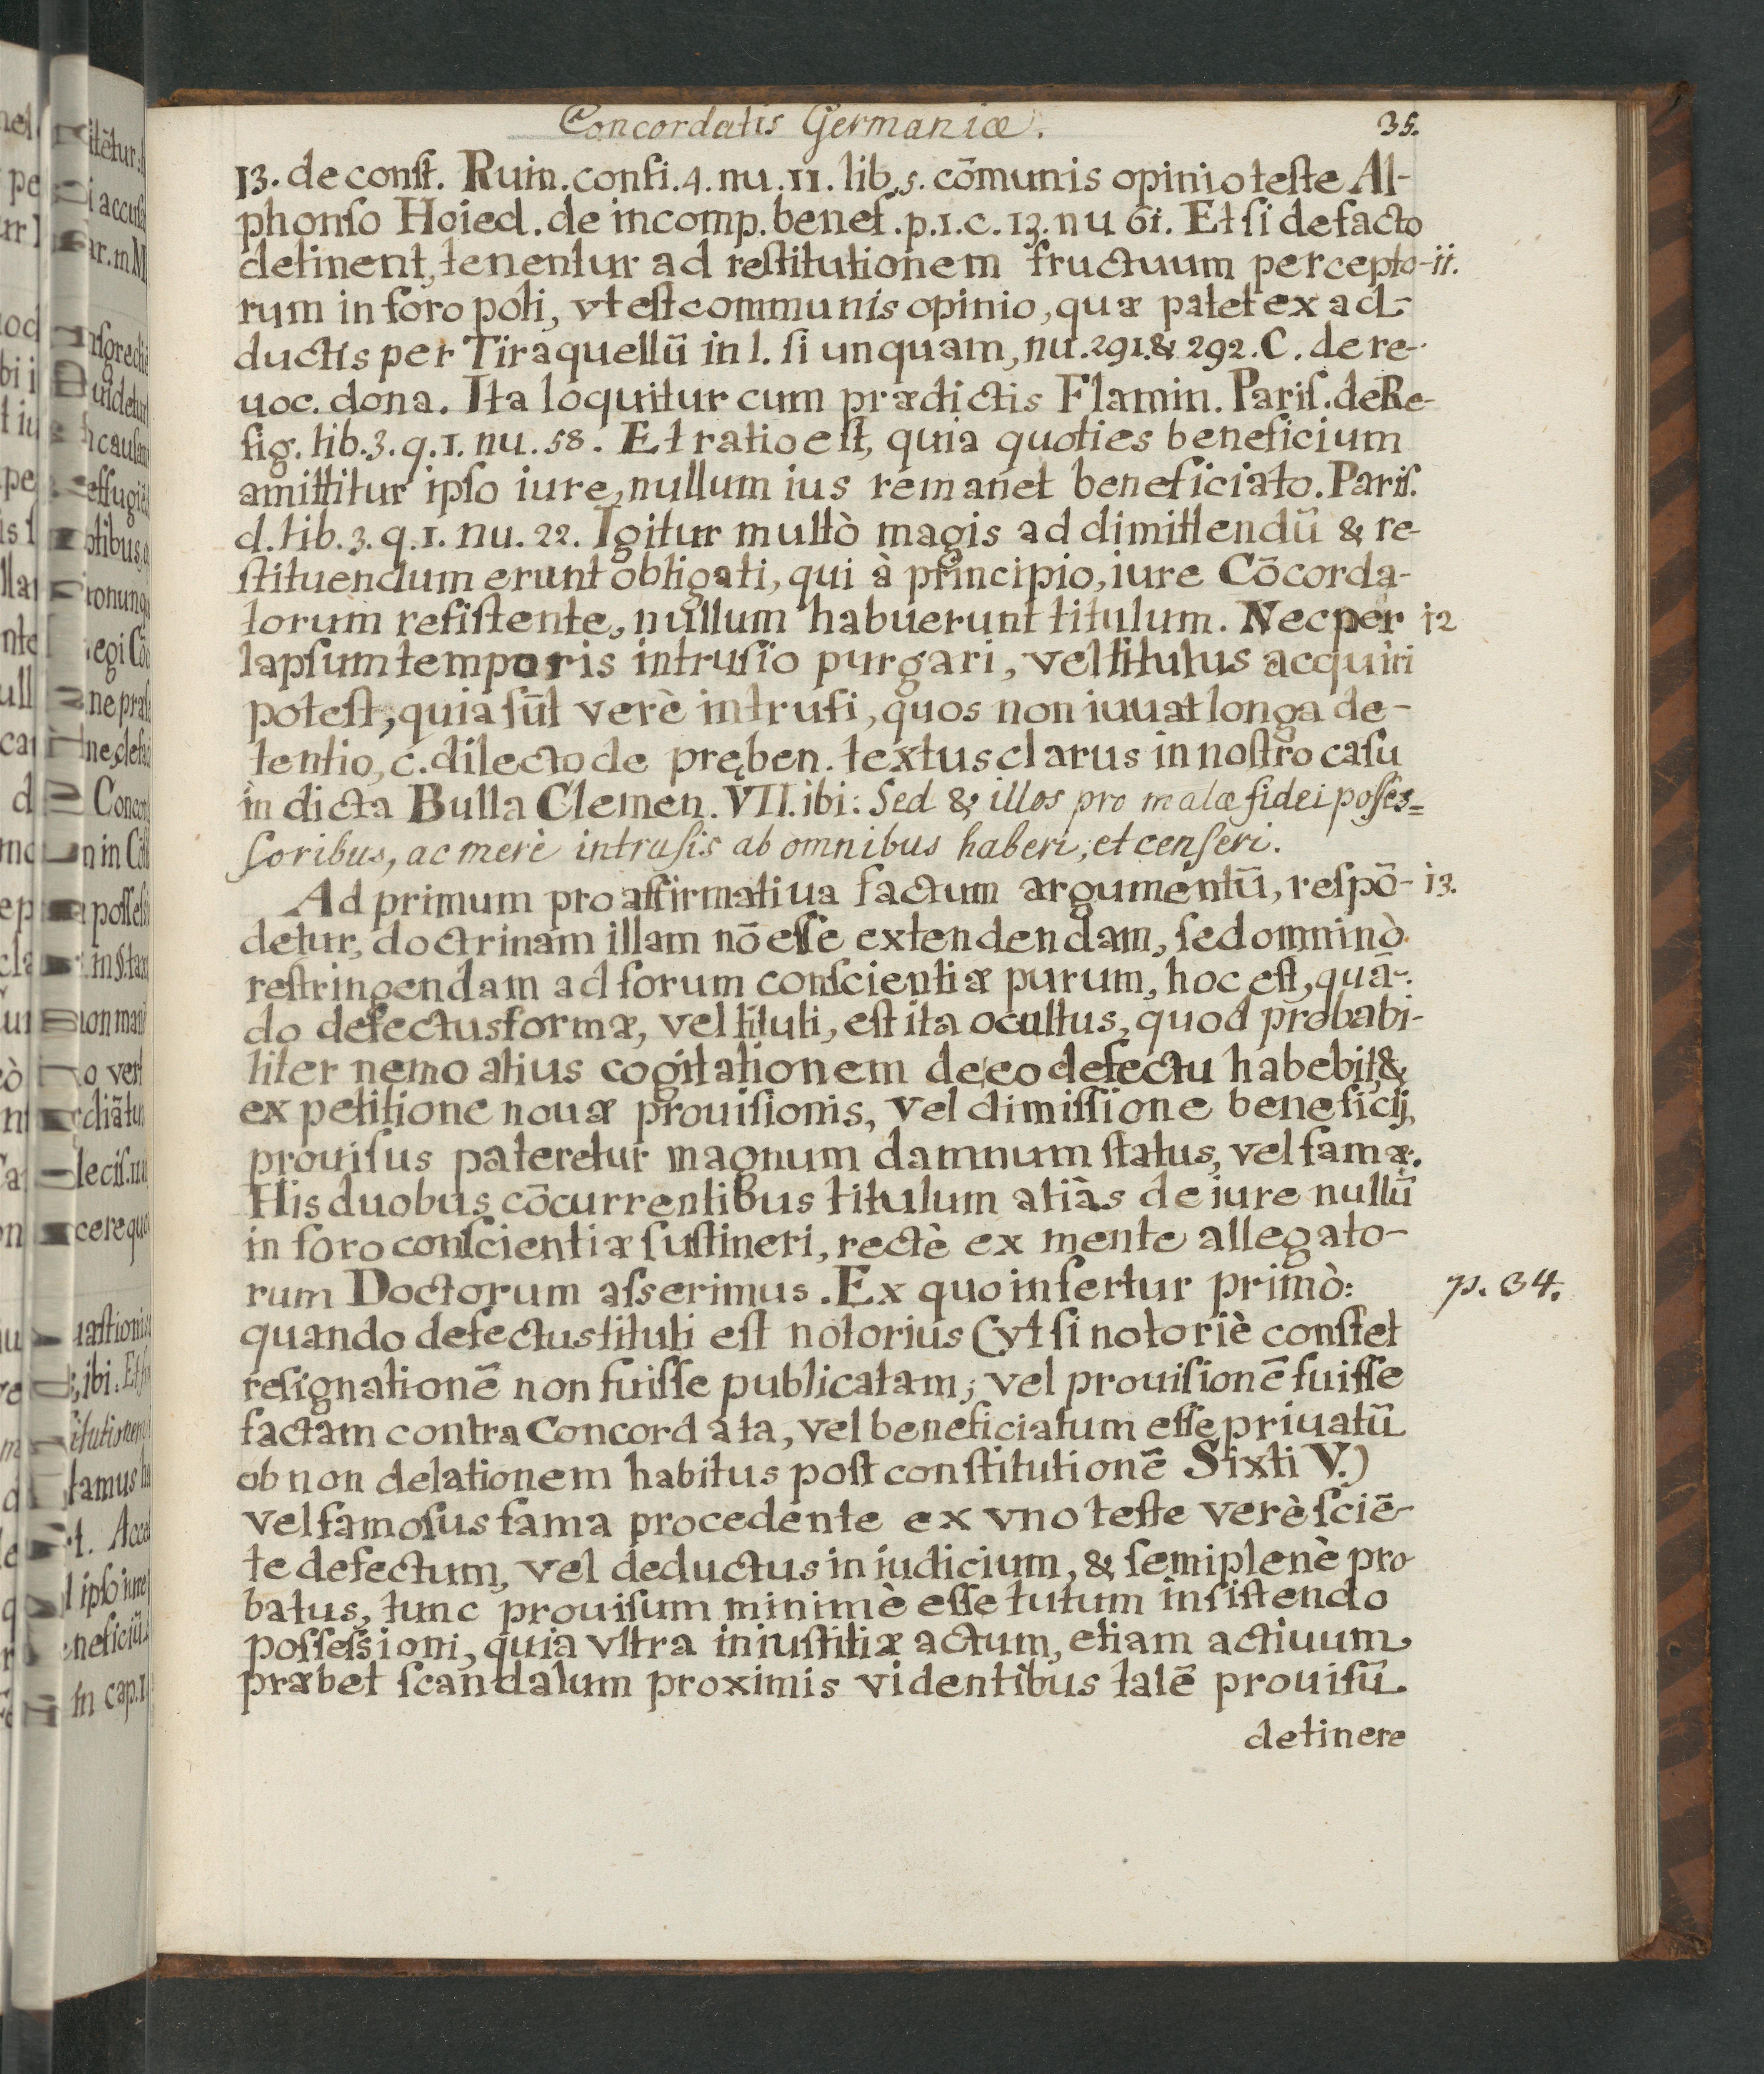 Concordatis Germaniæ. 35.
13. de conſt. Ruin. conſi. 4. nu. 11. lib. 5. cōmunis opinio teſte Al-
phonſo Hoied. de incomp. benef. p. 1. c. 13. nu 61. Et ſi de facto
detinent, tenentur ad reſtitutionem fructuum percepto- 11.
rum in foro poli, vt eſt communis opinio, quæ patet ex ad-
ductis per Tiraquellū in l. ſi unquam, nu. 291. & 292. C. de re-
uoc. dona. Ita loquitur cum prædictis Flamin. Pariſ. de Re-
ſig. lib. 3. q. 1. nu. 58. Et ratio eſt, quia quoties beneficium
amittitur ipſo iure, nullum ius remanet beneficiato. Pariſ.
d. lib. 3. q. 1. nu. 22. Igitur multò magis ad dimittendū & re-
ſtituendum erunt obligati, qui à principio, iure Cōcorda-
torum reſiſtente, nullum habuerunt titulum. Nec per 12
lapſum temporis intruſio purgari, vel titulus acquiri
poteſt, quia ſūt verè intruſi, quos non iuuat longa de-
tentio, c. dilecto de pręben. textus clarus in noſtro caſu
in dicta Bulla Clemen. VII. ibi: Sed & illos pro malæ fidei poſſes=
ſoribus, ac merè intruſis ab omnibus haberi, et cenſeri.
Ad primum pro affirmatiua factum argumentū, reſpō- 13.
detur, doctrinam illam nō eſſe extendendam, ſed omninò
reſtringendam ad forum conſcientiæ purum, hoc eſt, quā-
do defectus formæ, vel tituli, eſt ita ocultus, quod probabi-
liter nemo alius cogitationem de eo defectu habebit, &
ex petitione nouæ prouiſionis, vel dimiſſione beneficij,
prouiſus pateretur magnum damnum ſtatus, vel famæ.
His duobus cōcurrentibus titulum aliàs de iure nullū
in foro conſcientiæ ſuſtineri, rectè ex mente allegato-
rum Doctorum aſserimus. Ex quo infertur primò: p. 34.
quando defectus tituli eſt notorius (vt ſi notoriè conſtet
reſignationē non fuiſſe publicatam; vel prouiſionē fuiſſe
factam contra Concordata, vel beneficiatum eſſe priuatū
ob non delationem habitus poſt conſtitutionē Sixti V.)
vel famoſus fama procedente ex vno teſte verè ſciē-
te defectum, vel deductus in iudicium, & ſemiplenè pro
batus, tunc prouiſum minimè eſſe tutum inſiſtendo
poſſeſsioni, quia vltra iniuſtitiæ actum, etiam actiuum
præbet ſcandalum proximis videntibus talē prouiſū
detinere